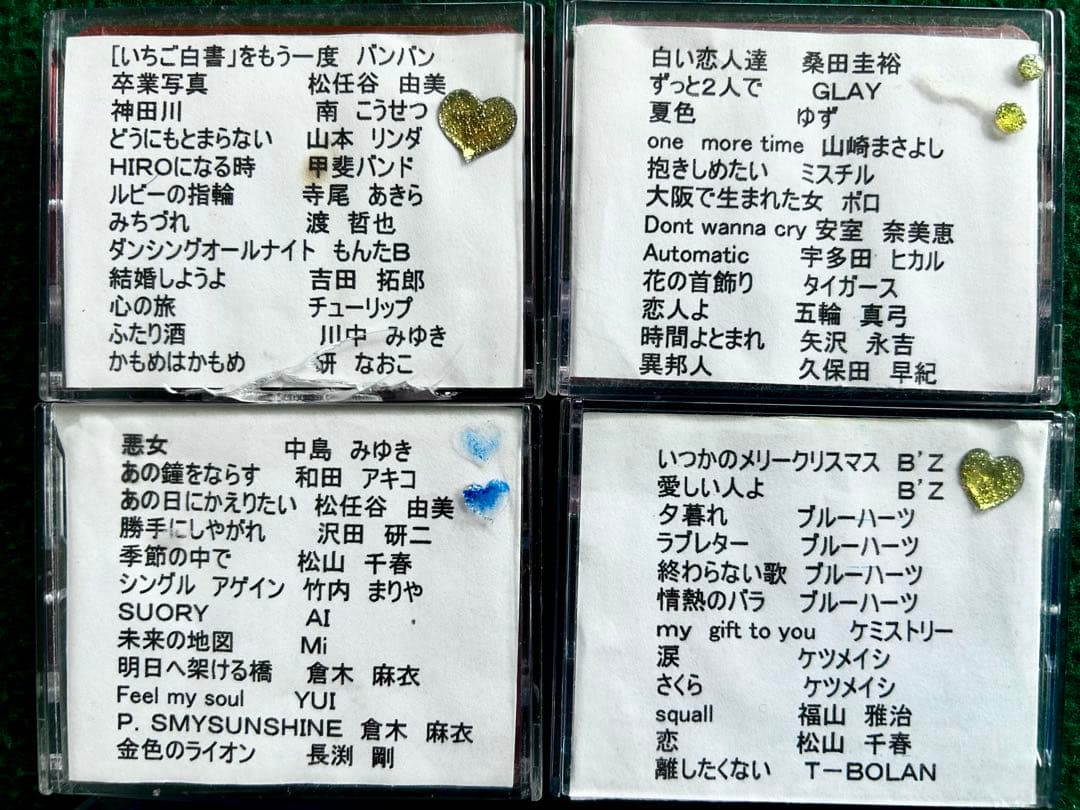 ｢いちご白書」をもう一度 バンバン
卒業写真 松任谷 由美
神田川 南 こうせつ
どうにもとまらない 山本 リンダ
HIROになる時 甲斐バンド
ルビーの指輪 寺尾 あきら
みちづれ 渡 哲也
ダンシングオールナイト もんたB
結婚しようよ 吉田 拓郎
心の旅 チューリップ
ふたり酒 川中 みゆき
かもめはかもめ 研 なおこ
白い恋人達 桑田圭裕
ずっと2人で GLAY
夏色 ゆず
one more time 山崎まさよし
抱きしめたい ミスチル
大阪で生まれた女 ボロ
Dont wanna cry 安室 奈美恵
Automatic 宇多田 ヒカル
花の首飾り タイガース
恋人よ 五輪 真弓
時間よとまれ 矢沢 永吉
異邦人 久保田 早紀
悪女 中島 みゆき
あの鐘をならす 和田 アキコ
あの日にかえりたい 松任谷 由美
勝手にしやがれ 沢田 研二
季節の中で 松山 千春
シングル アゲイン 竹内 まりや
SUORY AI
未来の地図 Mi
明日へ架ける橋 倉木 麻衣
Feel my soul YUI
P. SMYSUNSHINE 倉木 麻衣
金色のライオン 長渕 剛
いつかのメリークリスマス B'Z
愛しい人よ B'Z
夕暮れ ブルーハーツ
ラブレター ブルーハーツ
終わらない歌 ブルーハーツ
情熱のバラ ブルーハーツ
my gift to you ケミストリー
涙 ケツメイシ
さくら ケツメイシ
squall 福山 雅治
恋 松山 千春
離したくない T-BOLAN